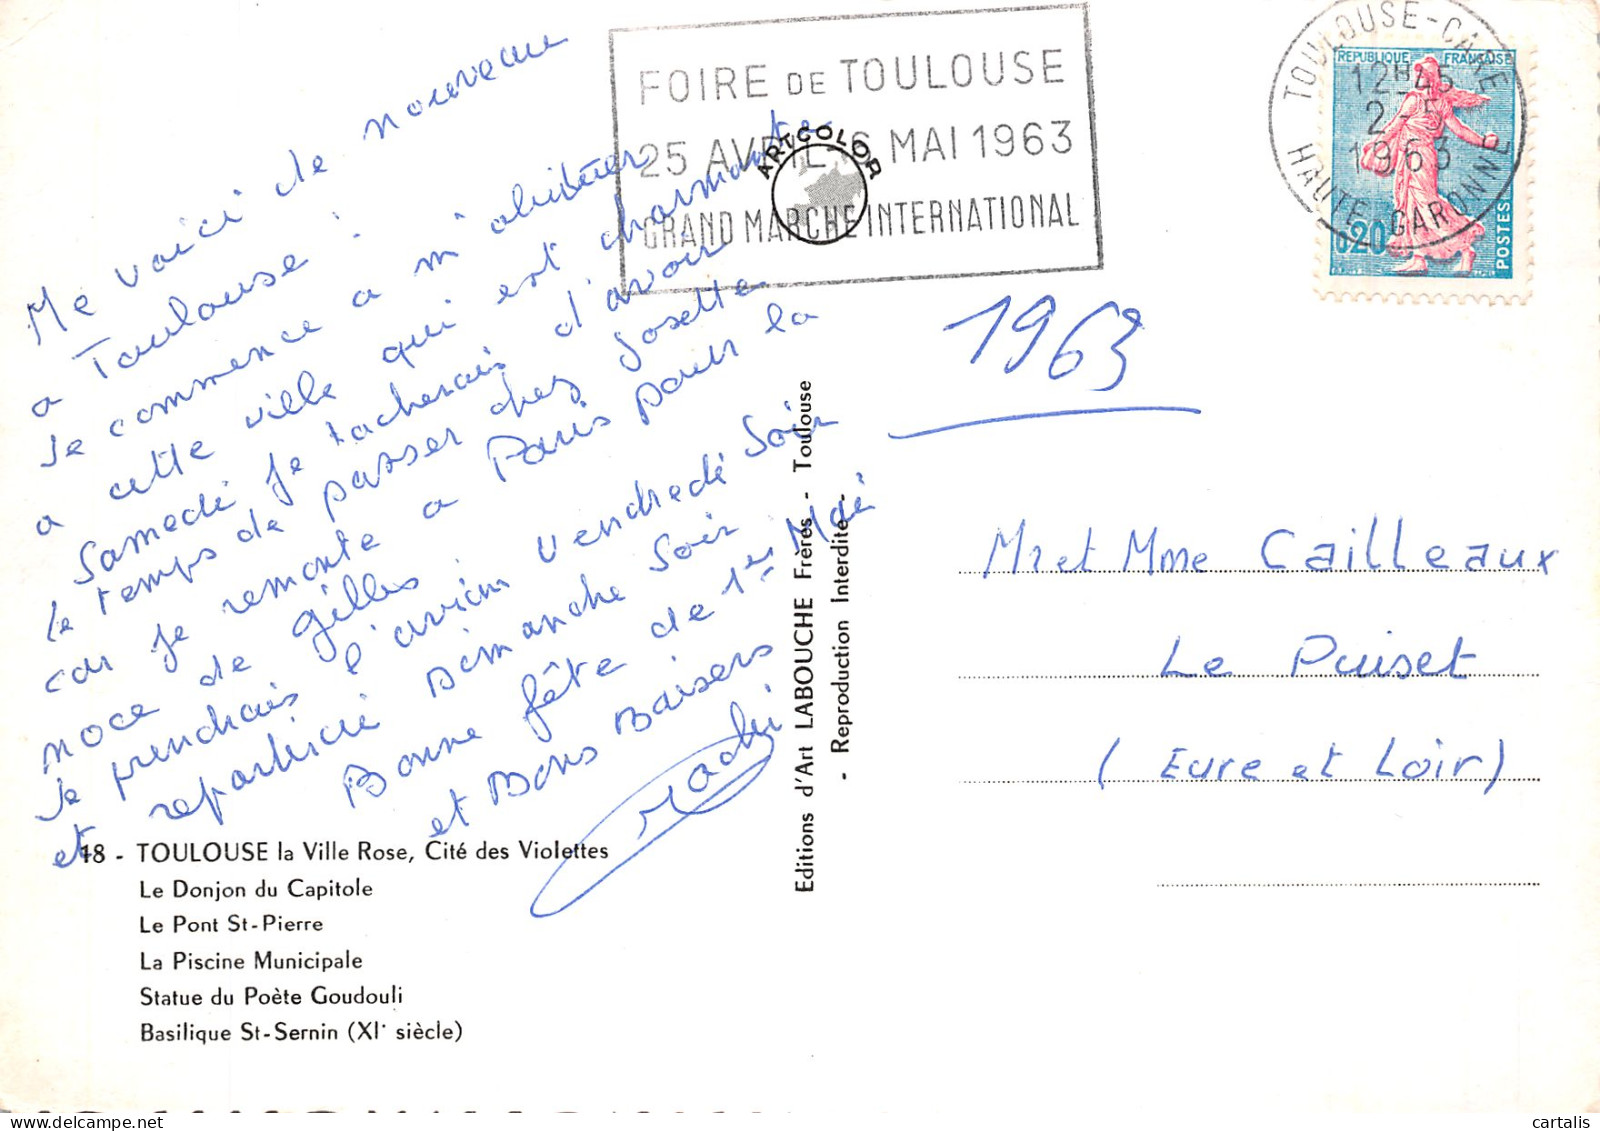 FOIRE DE TOULOUSE
25 AVRIL-6 MAI 1963
GRAND MARCHE INTERNATIONAL
ARTCOLOR
TOULOUSE-GARE
12H45
2-5
1963
HAUTE-GARONNE
REPUBLIQUE FRANÇAISE
0,20
POSTES
Me voici de nouveau
a Toulouse !
Je commence a m'abituer
a cette ville qui est charmante
Samedi je tacherais d'avoir
le temps de passer chez Josette
car je remonte a Paris pour la
noce de Gilles.
Je prendrais l'avion vendredi soir
et repartirai Dimanche Soir
Bonne fête de 1er Mai
et Bons Baisers
1963
Mr et Mme Cailleaux
Le Puiset
(Eure et Loir)
Editions d'Art LABOUCHE Frères - Toulouse
- Reproduction Interdite -
18 - TOULOUSE la Ville Rose, Cité des Violettes
Le Donjon du Capitole
Le Pont St-Pierre
La Piscine Municipale
Statue du Poète Goudouli
Basilique St-Sernin (XIe siècle)
cartalis